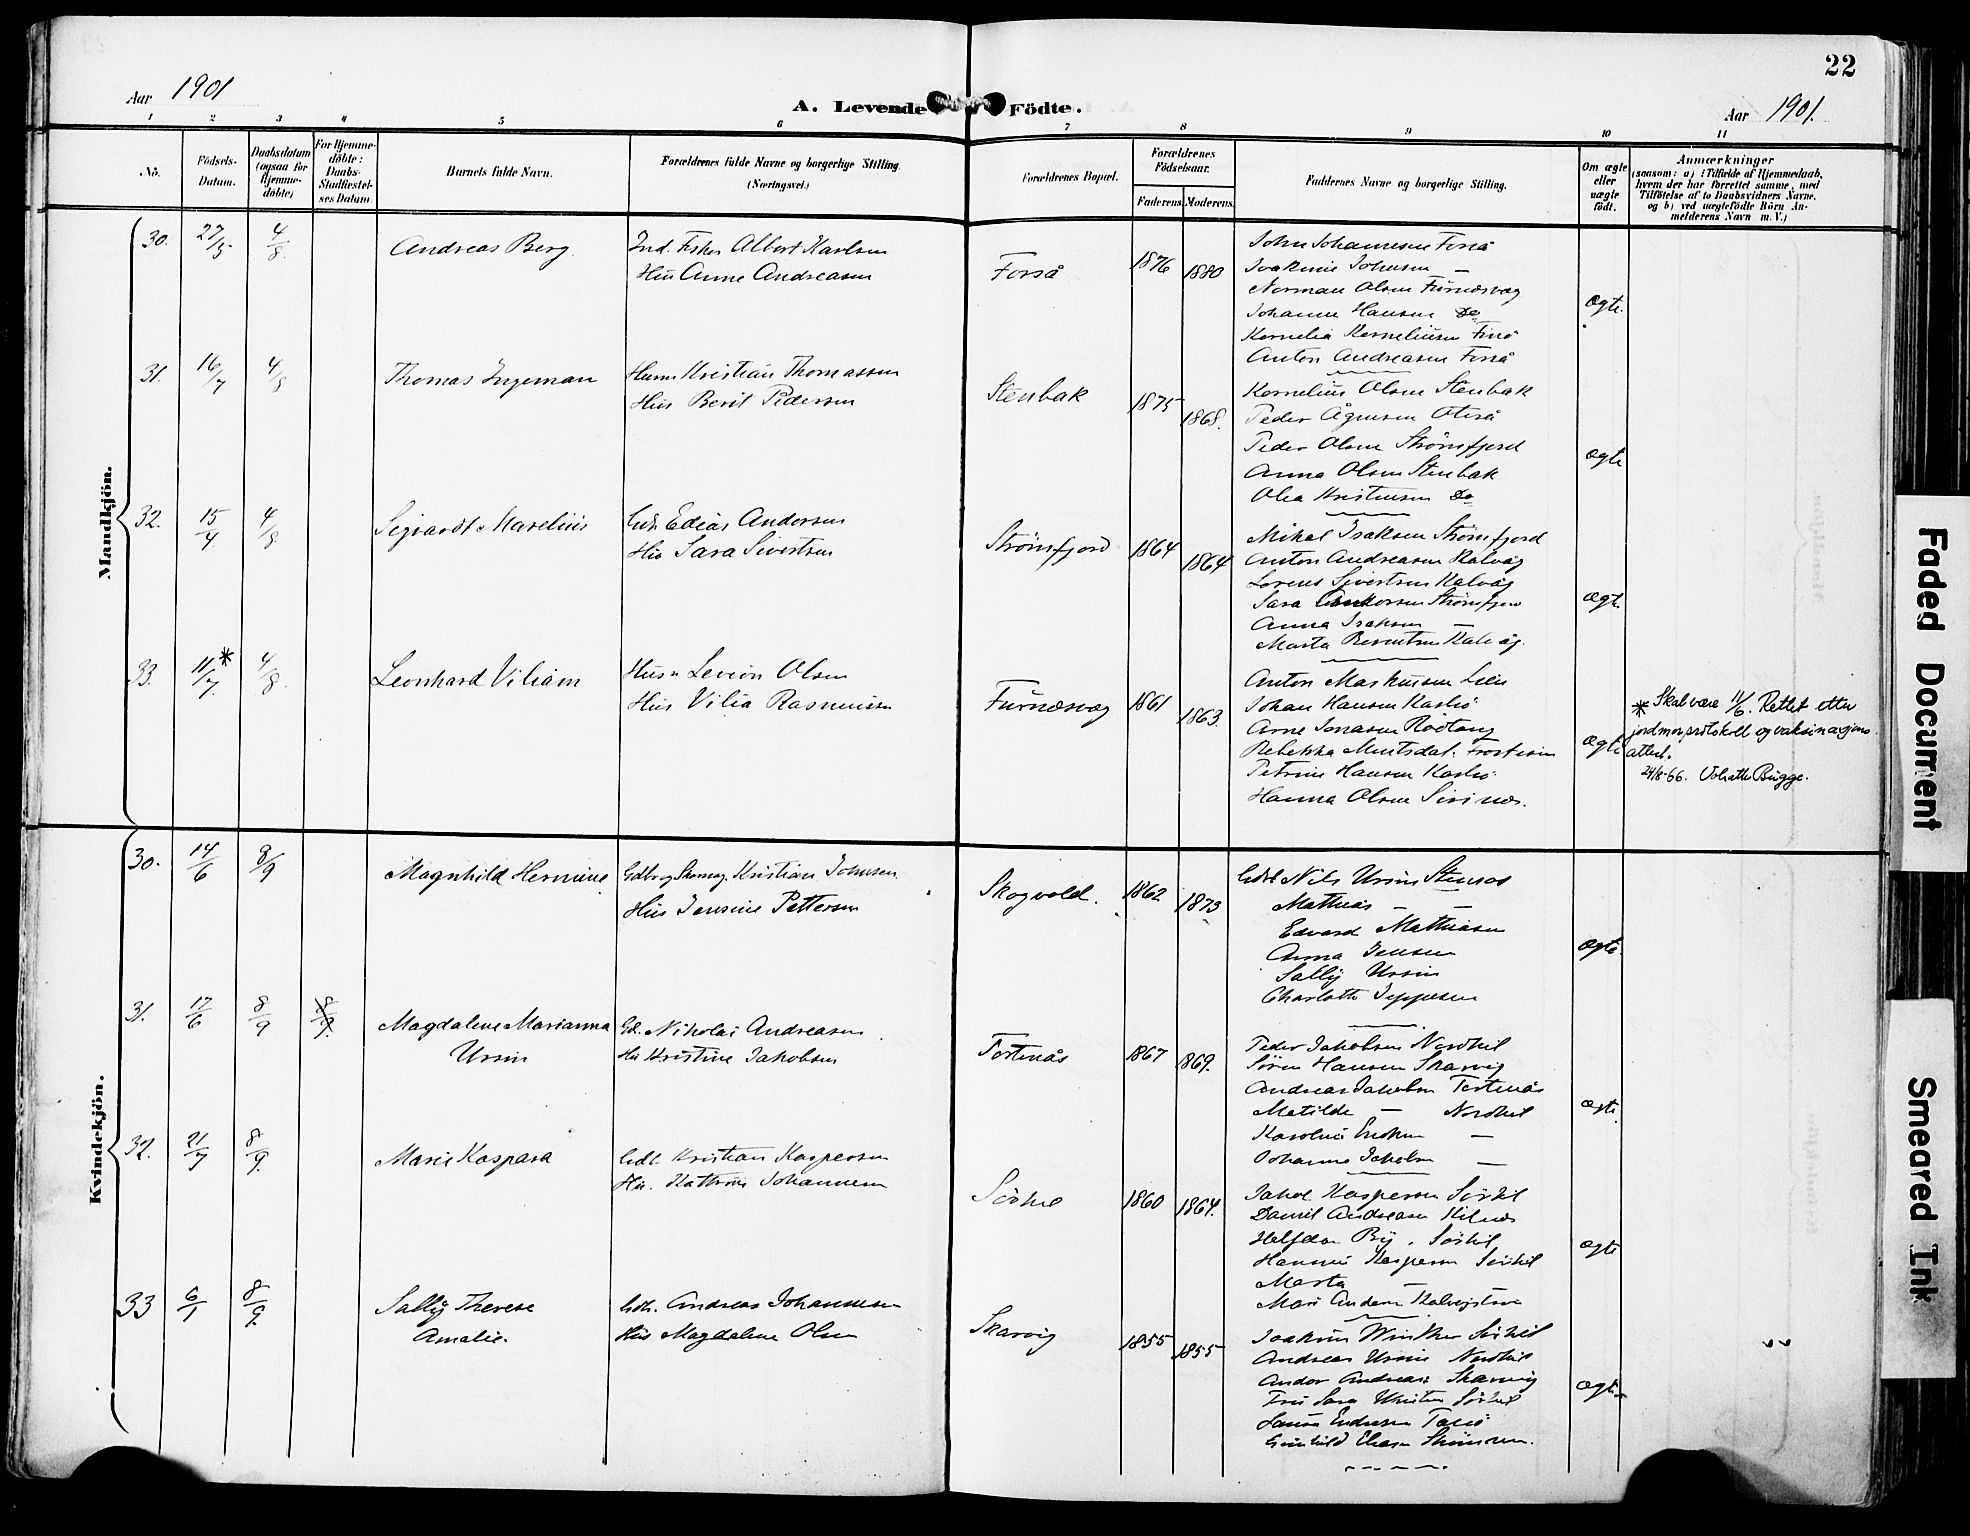 22
Aar 1901
A. Levende Födte.
Aar 1901.
1 2 3 4 5 6 7 8 9 10 11
No.
Födsels-
Datum.
Daabsdatum
(ogsaa for
Hjemme-
döbte)
For Hjemme-
döbte:
Daabs-
Stadfæstel-
ses Datum.
Barnets fulde Navn.
Forældrenes fulde Navne og borgerlige Stilling.
(Næringsvei.)
Forældrenes Bopæl.
Forældrenes
Födselsaar.
Faderens. Moderens.
Faddernes Navne og borgerlige Stilling.
Om ægte
eller
uægte
födt.
Anmærkninger
(saasom: a) i Tilfælde af Hjemmedaab,
hvem der har forrettet samme, med
Tilföielse af to Daabsvidners Navne.
og b) ved uægtefödte Börn An-
melderens Navn m. V.)
Mandkjön.
30. 27/5 4/8 Andreas Berg.
Ind. Fisker Albert Karlsen
Hus Anne Andreasen
Forså 1876 1880
John Johannesen Forså
Joakime Johnsen —
Norman Olsen Furnesvåg
Johanne Hansen Do
Kornelia Korneliusen
Anton Andreasen Forså
Ægte.
31. 16/7 4/8 Thomas Ingeman
Husm Kristian Thomassen
Hus Berit Pedersen
Stenbak 1875 1868.
Kornelius Olsen Stenbak
Peder Ågnesen
Peder Olsen Strömsfjord
Anna Olsen Stenbak
Olea Kristensen Do
Ægte
32. 15/4 4/8 Sigvardt Marelius
Gdb. Edias Andersen
Hus Sara Sivertsen
Strömsfjord 1864 1864
Mikal Isaksen Strömsfjord
Anton Andreasen Kalvåg
Lorens Sivertsen Kalvåg
Sara Andersen Strömsfjord
Anna Isaksen —
Marta Berentsen Kalvåg.
Ægte.
33. 11/7 * 4/8 Leonhard Viliam
Husm Levion Olsen
Hus Vilia Rasmussen
Furnesvåg 1861 1863.
Anton Markussen
Johan Hansen
Arne Jonassen Rödtang
Rebekka
Petrine Hansen
Hanna Olsen
Ægte
* Skal være 11/6. Rettet etter
jordmorprotokoll og vaksinasjons-
attest.
24/8-66. Bugge.
Kvindekjön.
30. 14/6 8/9 Magnhild Hermine
Gdb og Skomag. Kristian Johnsen
Hus Jensine Pettersen
Skogvold. 1862 1873
Gdb Nils Ursin
Mathias — —
Edvard Mathiasen
Anna Jensen
Sally Ursin
Charlotte Jeppesen
Ægte.
31. 17/6 8/9 8/9. Magdalene Marianna
Ursin
Gd. Nikolai Andreasen
Hu Kristine Jakobsen
Tortenås 1867 1869.
Peder Jakobsen Nordhil
Sören Hansen Skarvig
Andreas Jakobsen Tortenås
Matilde — Nordhil
Karoline —
Johanna Jakobsen —
Ægte.
32. 21/7 8/9. Marie Kaspara
Gdb. Kristian Kaspersen
Hu. Kathrine Johannesen
1860 1864.
Jakob Kaspersen Sörhil
Daniel Andreasen Kilnes
Halfdan By. Sörhil
Hannie Kaspersen Sörhil
Marta — —
Mari Andersen
Ægte
33 6/1 8/9. Sally Therese
Amalie.
Gdb. Andreas Johannesen
Hus Magdalene Olsen
Skarvig 1855 1855
Joakim Winther Sörhil
Andreas Ursin Nordhil
Andor Andreas. Skarvig
Fru Sara Winther Sörhil
Laura
Gunhild
Ægte
Faded Document
Smeared Ink